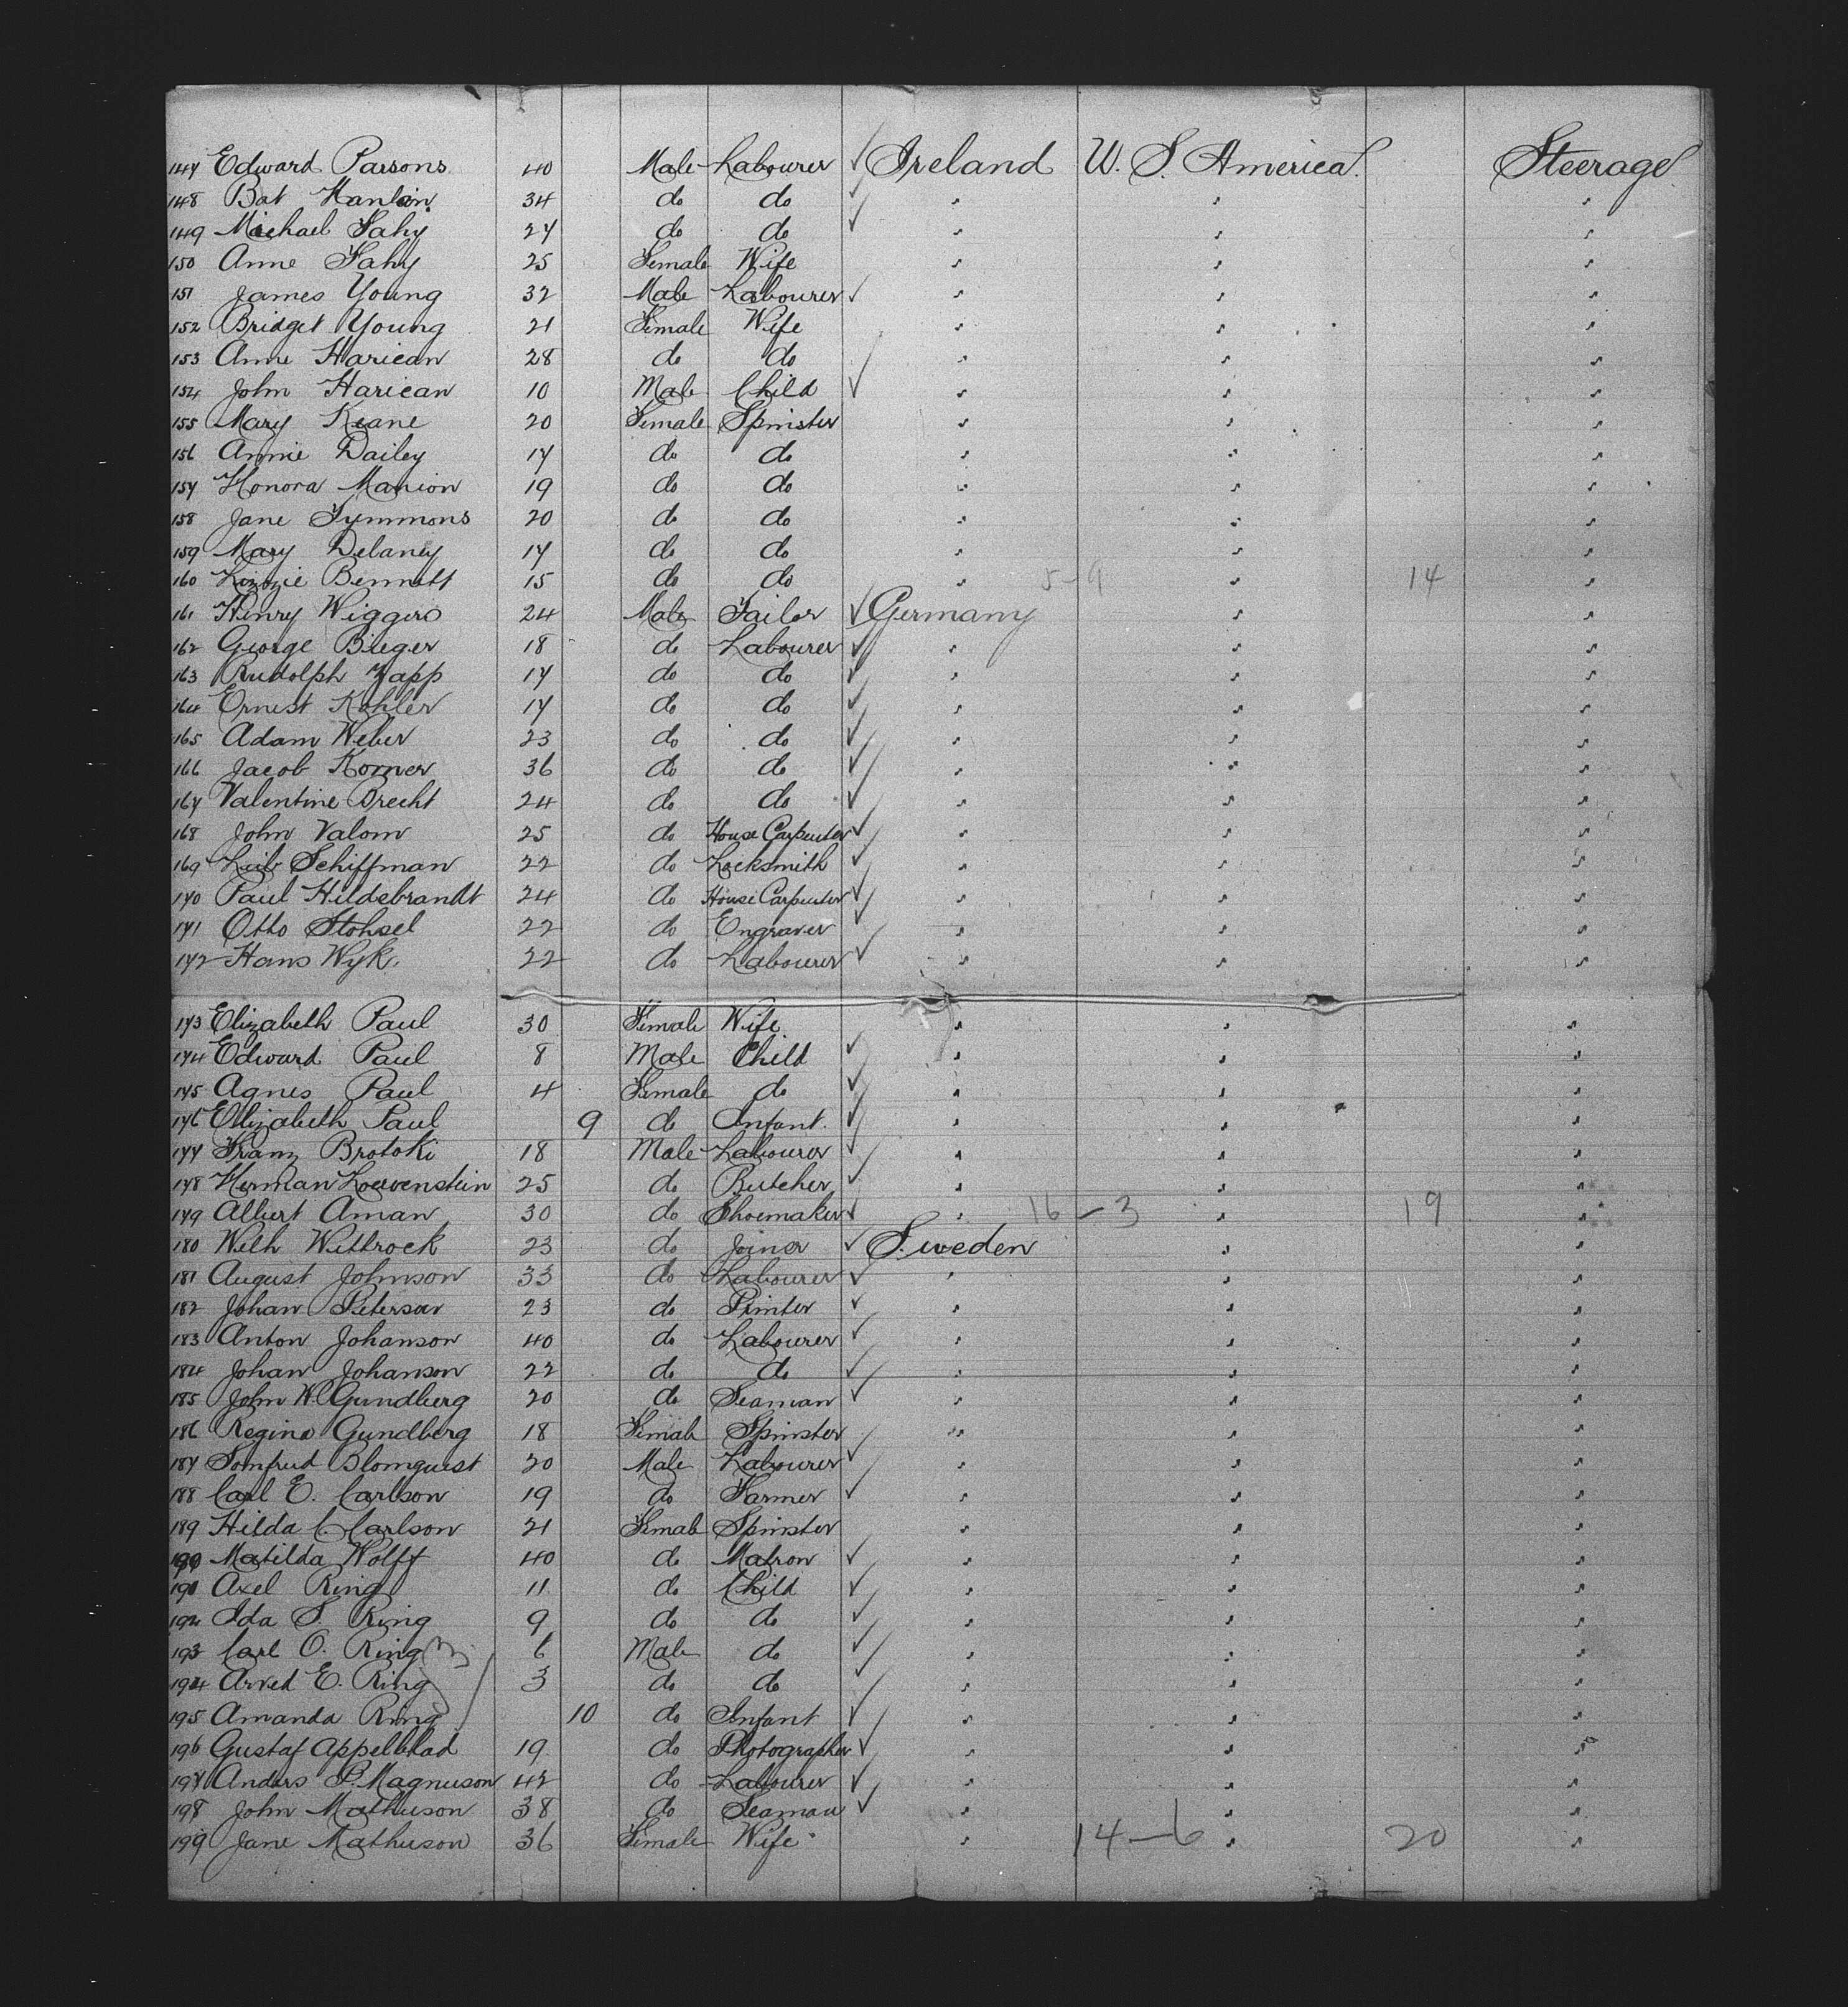 147 Edward Parsons 40 Male Labourer ✓ Ireland U. S. America. Steerage
148 Bat Hanlon 34 do do ✓ " " "
149 Michael Fahy 27 do do ✓ " " "
150 Anne Fahy 25 Female Wife " " "
151 James Young 32 Male Labourer ✓ " " "
152 Bridget Young 21 Female Wife " " "
153 Anne Harican 28 do do " " "
154 John Harican 10 Male Child ✓ " " "
155 Mary Keane 20 Female Spinster " " "
156 Annie Dailey 17 do do " " "
157 Honora Manion 19 do do " " "
158 Jane Symmons 20 do do " " "
159 Mary Delaney 17 do do " " "
160 Lizzie Bennett 15 do do " 5-9 " 14 "
161 Henry Wiggers 24 Male Tailor ✓ Germany " "
162 George Bieger 18 do Labourer ✓ " " "
163 Rudolph Zapp 17 do do ✓ " " "
164 Ernest Kohler 17 do do ✓ " " "
165 Adam Weber 23 do do ✓ " " "
166 Jacob Korner 36 do do ✓ " " "
167 Valentine Brecht 24 do do ✓ " " "
168 John Valom 25 do House Carpenter ✓ " " "
169 Leib Schiffman 22 do Locksmith ✓ " " "
170 Paul Hildebrandt 24 do House Carpenter ✓ " " "
171 Otto Stohsel 22 do Engraver ✓ " " "
172 Hans Wyk. 22 do Labourer ✓ " " "
173 Elizabeth Paul 30 Female Wife " " "
174 Edward Paul 8 Male Child ✓ " " "
175 Agnes Paul 4 Female do ✓ " " "
176 Elizabeth Paul 9 do Infant. ✓ " " "
177 Franz Brotoki 18 Male Labourer ✓ " " "
178 Herman Loewenstein 25 do Butcher ✓ " " "
179 Albert Aman 30 do Shoemaker ✓ " 16-3 " 19 "
180 Welh Wittrock 23 do Joiner ✓ Sweden " "
181 August Johnson 33 do Labourer ✓ " " "
182 Johan Peterson 23 do Printer ✓ " " "
183 Anton Johanson 40 do Labourer ✓ " " "
184 Johan Johanson 22 do do ✓ " " "
185 John W. Gundberg 20 do Seaman ✓ " " "
186 Regina Gundberg 18 Female Spinster " " "
187 Blomquist 20 Male Labourer ✓ " " "
188 Carl E. Carlson 19 do Farmer ✓ " " "
189 Hilda C. Carlson 21 Female Spinster " " "
190 Matilda Wolff 40 do Matron ✓ " " "
191 Axel Ring 11 do Child ✓ " " "
192 Ida S. Ring 9 do do ✓ " " "
193 Carl O. Ring 6 Male do ✓ " " "
194 Arved E. Ring 3 do do ✓ " " "
195 Amanda Ring 10 do Infant ✓ " " "
196 Gustaf Appelblad 19 do Photographer ✓ " " "
197 Anders P. Magnuson 42 do Labourer ✓ " " "
198 John Mathuson 38 do Seaman ✓ " " "
199 Jane Mathuson 36 Female Wife " 14-6 " 20 "